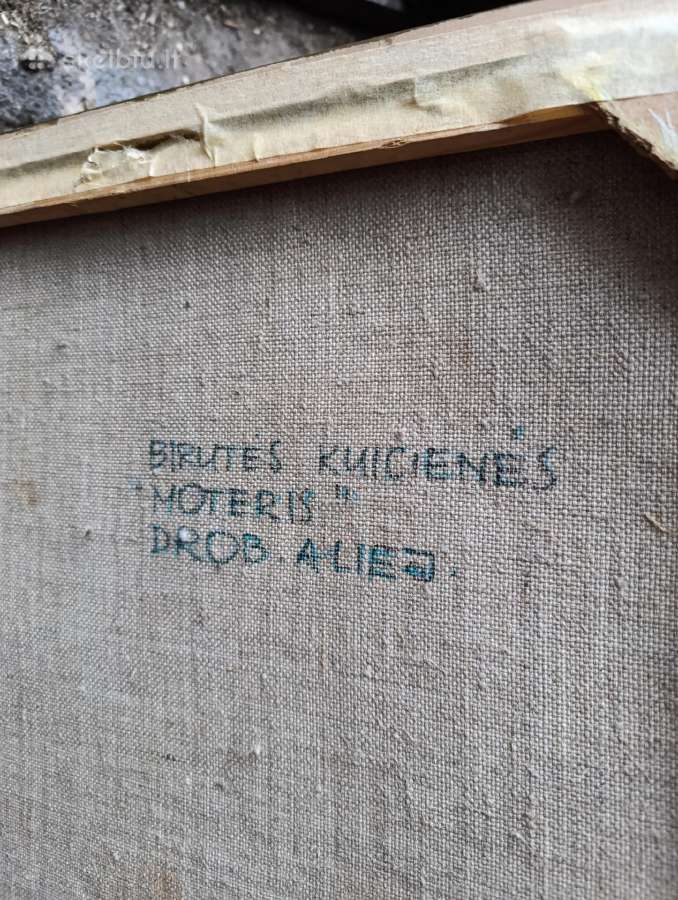 skelbiu.lt
BIRUTĖS KUIČIENĖS
"MOTERIS"
DROB. ALIEJ.